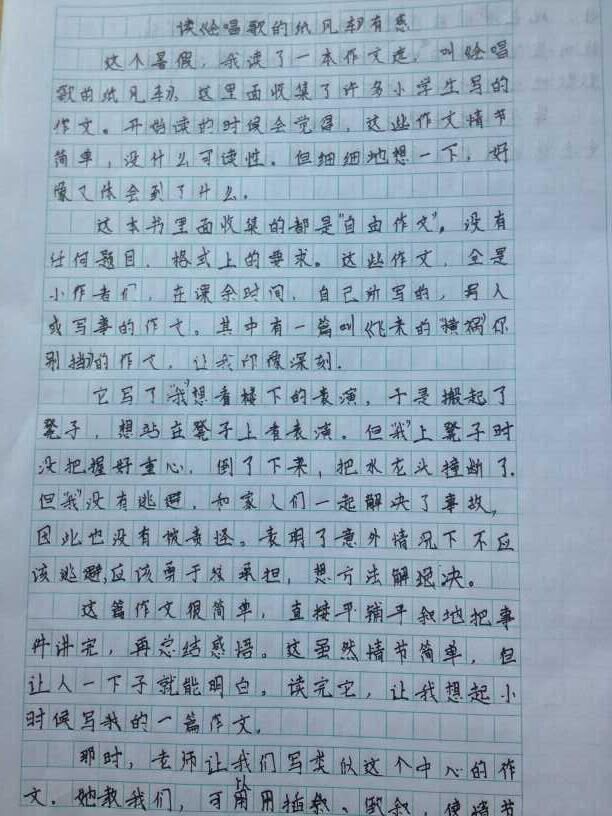 读《会唱歌的纸风车》有感
这个暑假，我读了一本作文选，叫《会唱
歌的纸风车》，这里面收集了许多小学生写的
作文。开始读的时候会觉得，这些作文情节
简单，没什么可读性。但细细地想一下，好
像又体会到了什么。
这本书里面收集的都是"自由作文"。没有
任何题目、格式上的要求。这些作文，全是
小作者们，在课余时间，自己所写的，写人
或写事的作文。其中有一篇叫《飞来的"横祸"你
别挡》的作文，让我印像深刻.
它写了"我"想看楼下的表演，于是搬起了
凳子，想站在凳子上看表演。但"我"上凳子时
没把握好重心，倒了下来，把水龙头撞断了.
但"我"没有逃避，和家人们一起解决了事故，
因此也没有被责怪。表明了意外情况下不应
该逃避,应该勇于承担，想方法解决。
这篇作文很简单，直接平铺平叙地把事
件讲完，再总结感悟。这虽然情节简单，但
让人一下子就能明白。读完它，让我想起小
时候写我的一篇作文.
那时，老师让我们写类似这个中心的作
文．她教我们，可以用插叙、倒叙，使情节